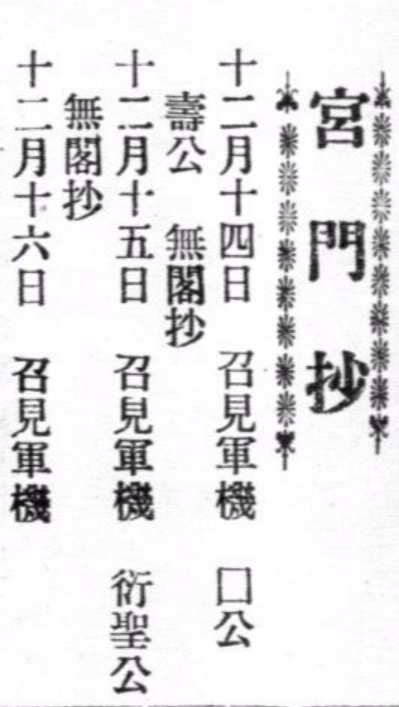 宮門抄
十二月十四日 召見軍機 囗公
壽公 無閣抄
十二月十五日 召見軍機 衍聖公
無閣抄
十二月十六日 召見軍機